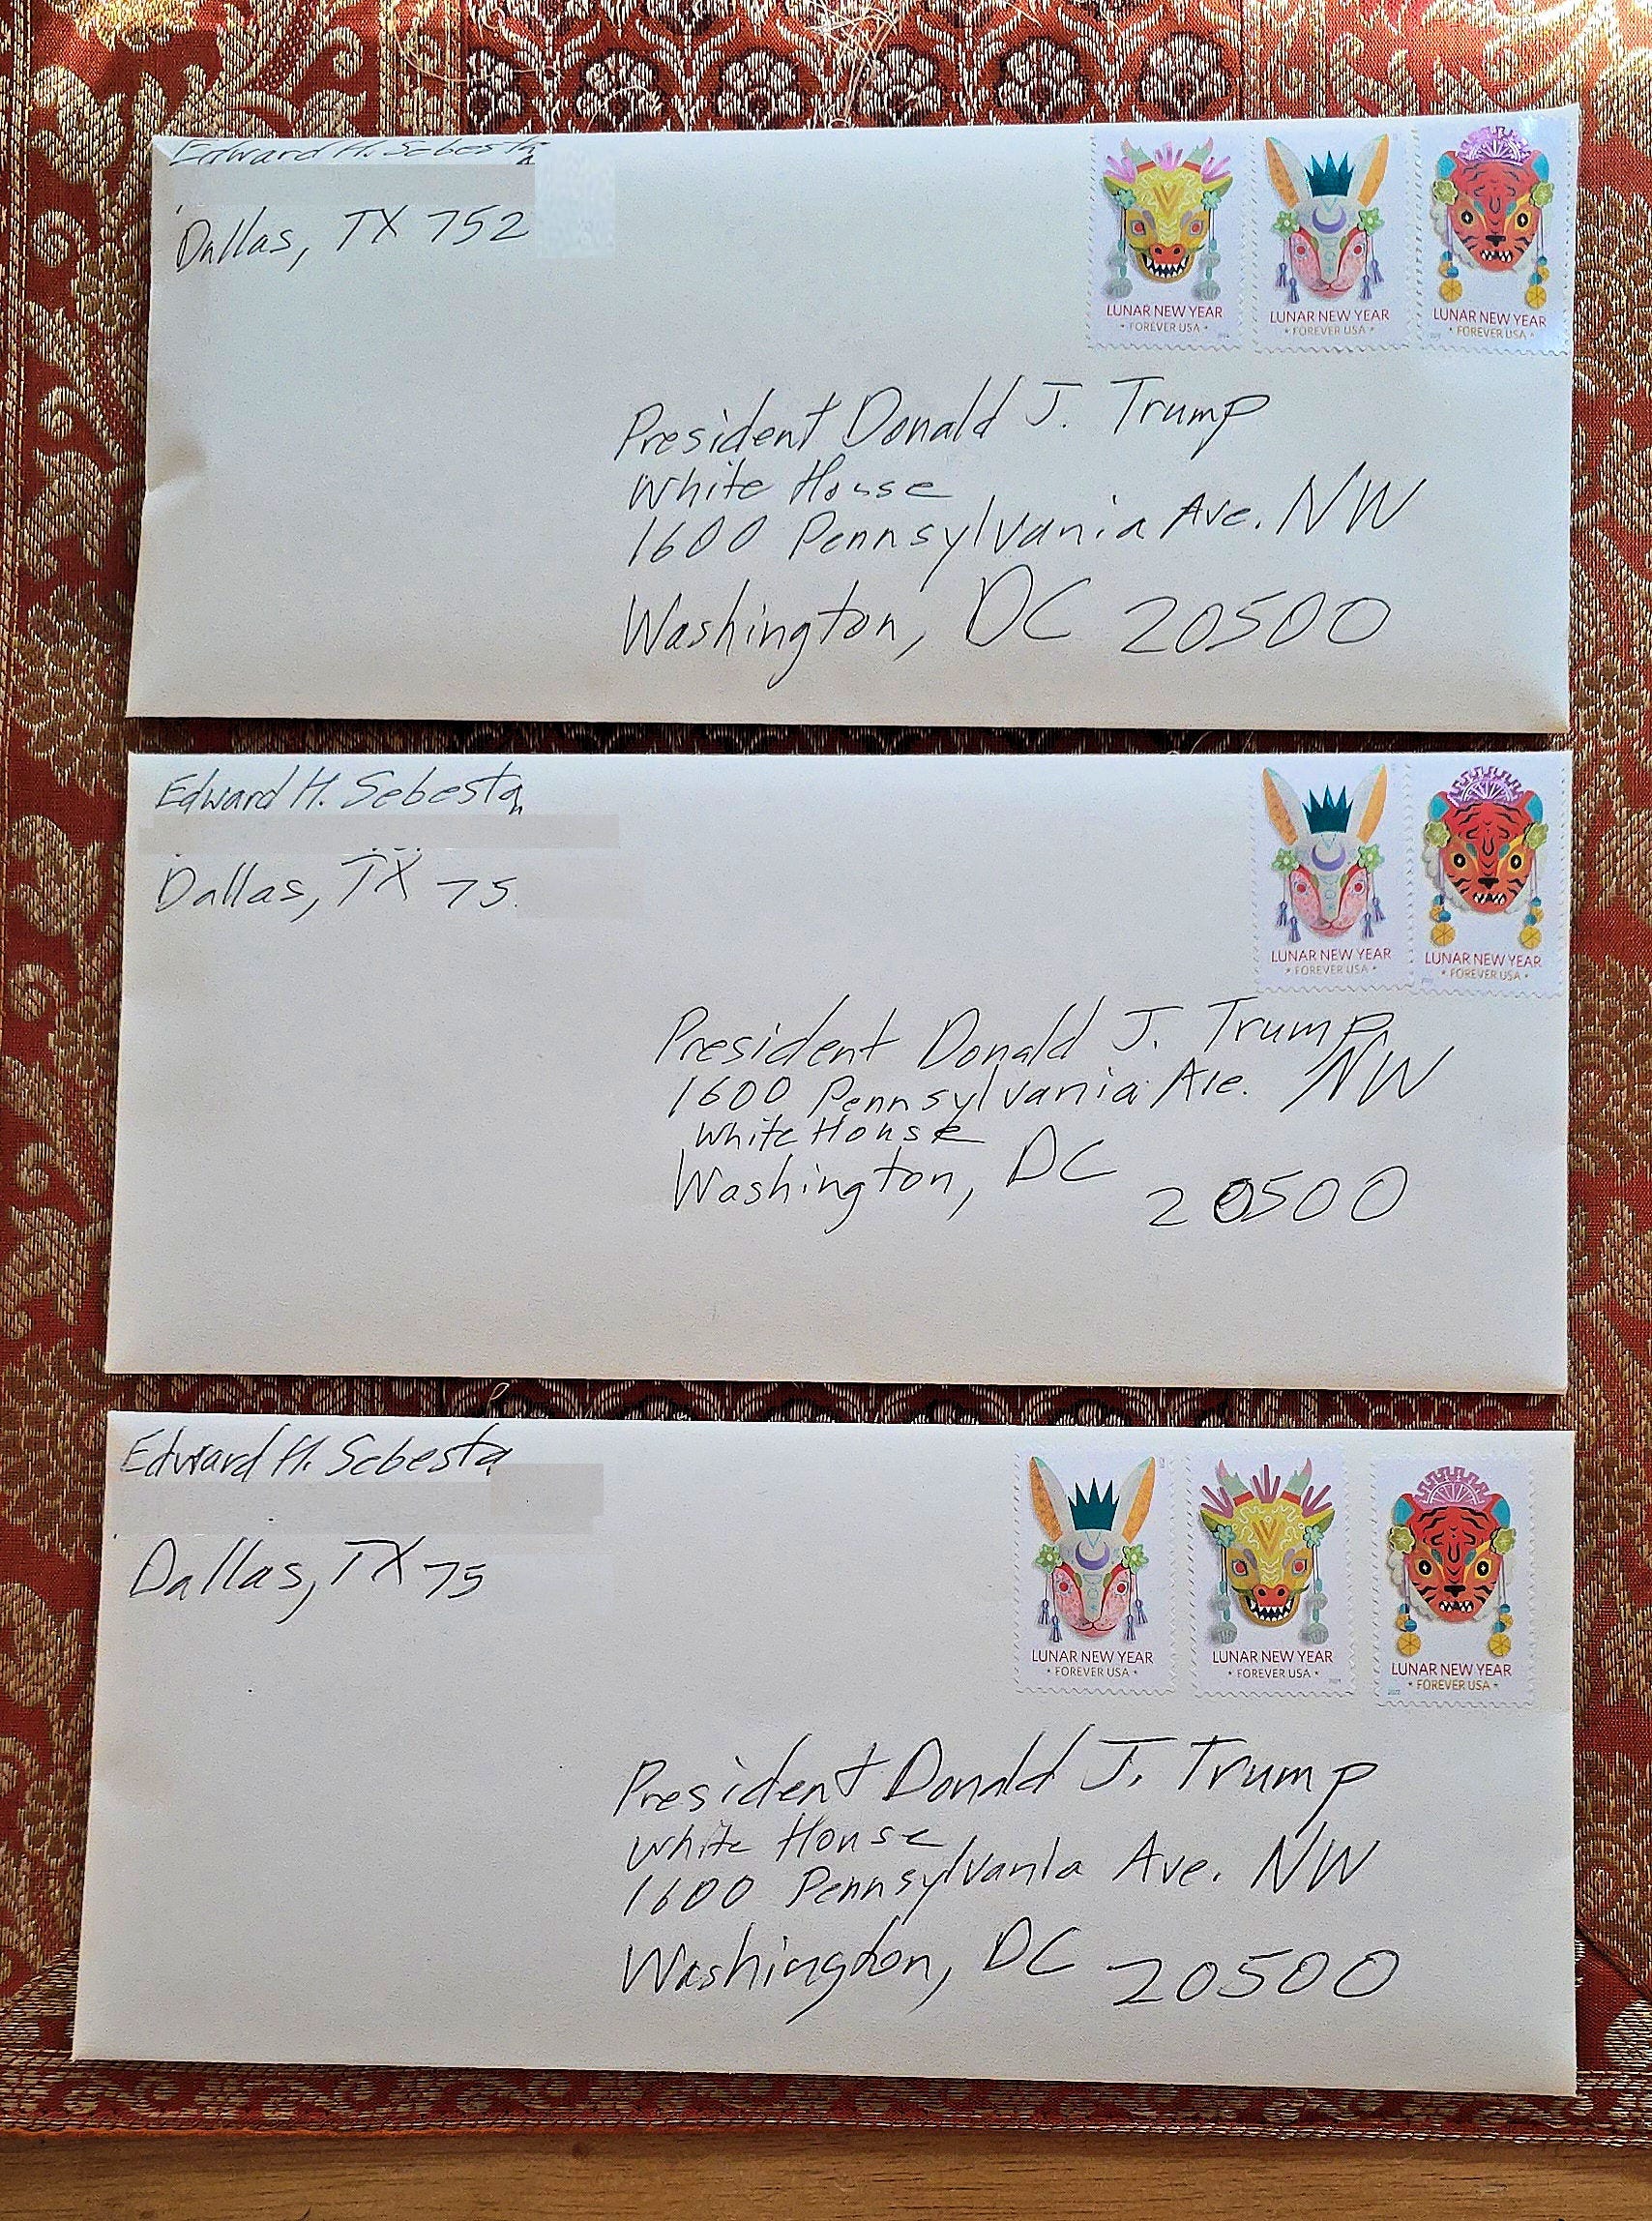 Edward H. Sebesta
Dallas, TX 752
LUNAR NEW YEAR
• FOREVER USA •
LUNAR NEW YEAR
• FOREVER USA •
LUNAR NEW YEAR
• FOREVER USA •
President Donald J. Trump
White House
1600 Pennsylvania Ave. NW
Washington, DC 20500
Edward H. Sebesta
Dallas, TX 75
LUNAR NEW YEAR
• FOREVER USA •
LUNAR NEW YEAR
• FOREVER USA •
President Donald J. Trump
1600 Pennsylvania Ave. NW
White House
Washington, DC 20500
Edward H. Sebesta
Dallas, TX 75
LUNAR NEW YEAR
• FOREVER USA •
LUNAR NEW YEAR
• FOREVER USA •
LUNAR NEW YEAR
• FOREVER USA •
President Donald J. Trump
White House
1600 Pennsylvania Ave. NW
Washington, DC 20500